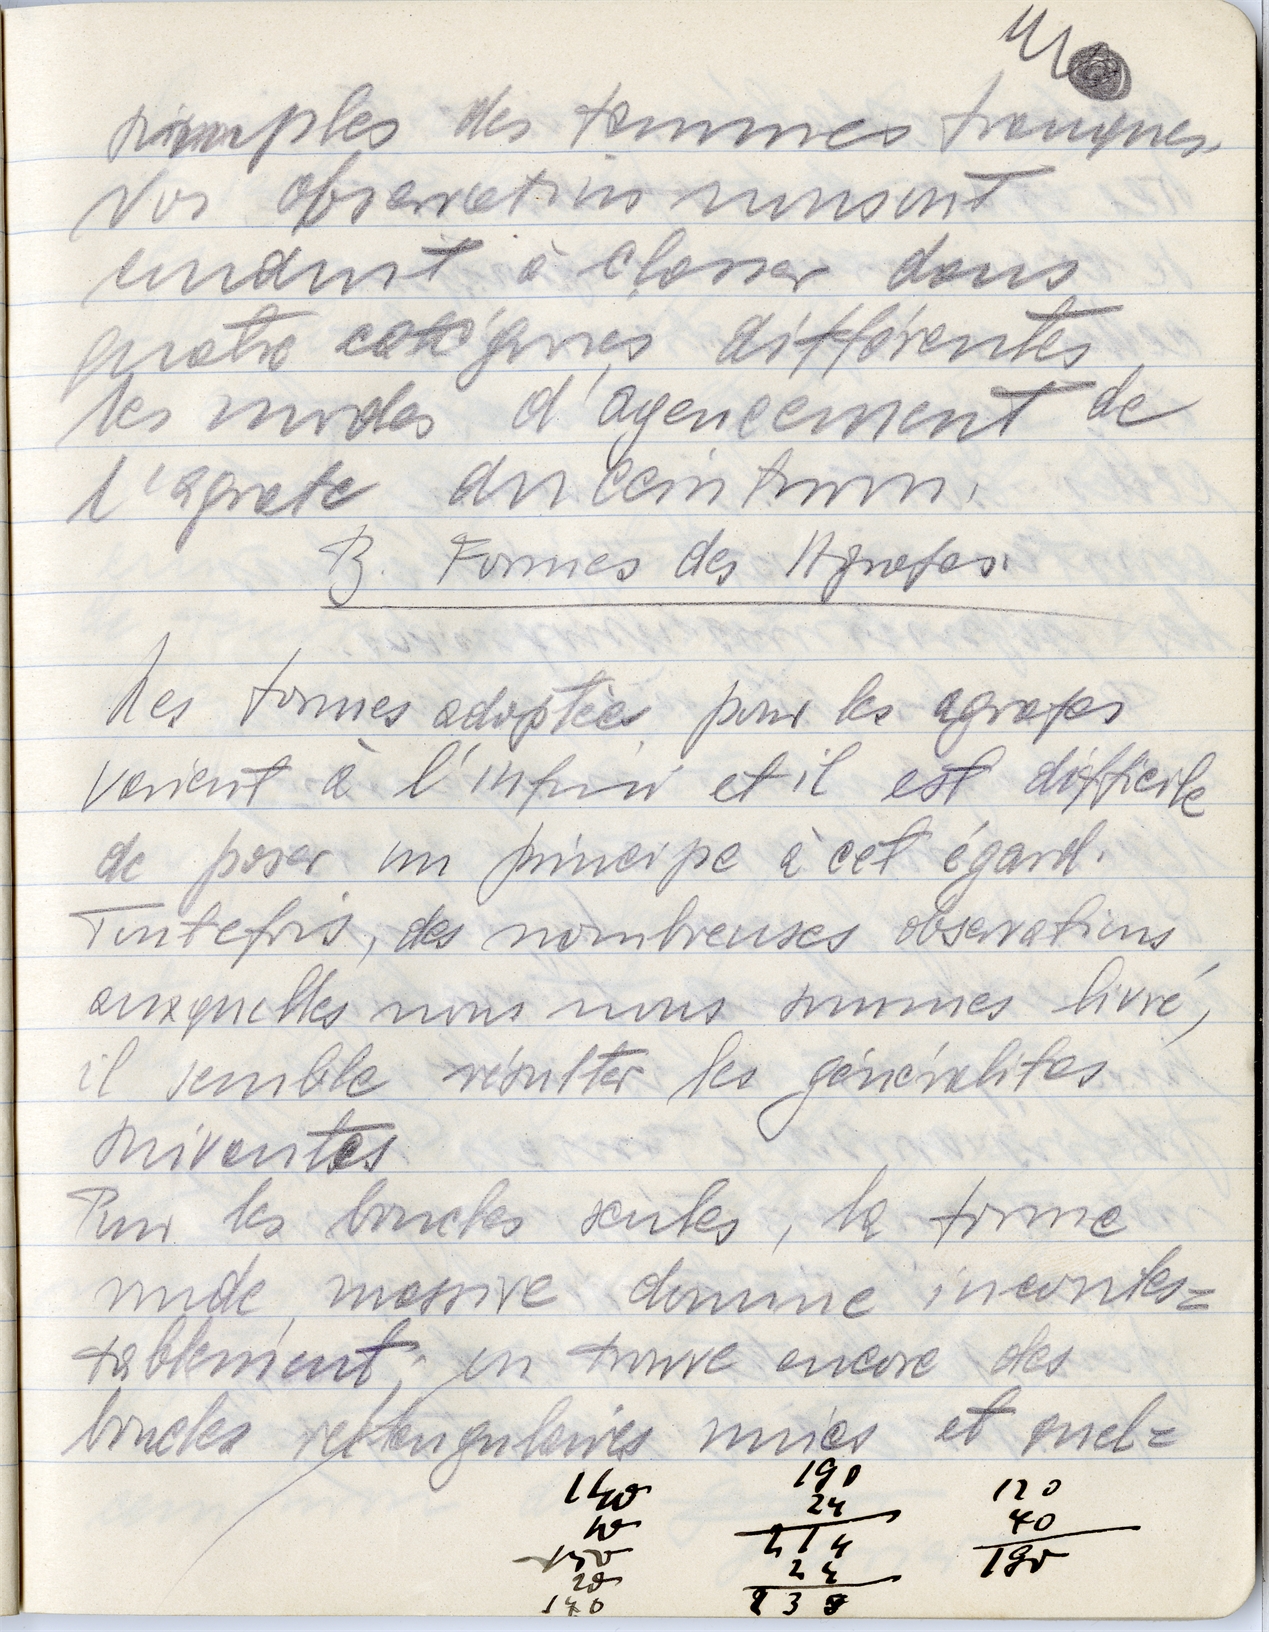 simples des femmes franques.
Nos observations nous ont
conduit à classer dans
quatre catégories différentes
les modes d'agencement de
l'agrafe du ceinturon.
B. Formes des Agrafes.
Les formes adoptées pour les agrafes
varient à l'infini et il est difficile
de poser un principe à cet égard.
Toutefois, des nombreuses observations
auxquelles nous nous sommes livré,
il semble résulter les généralités
suivantes
Pour les boucles seules, la forme
ronde, massive domine incontes=
tablement; on trouve encore des
boucles rectangulaires unies et quel=
190
24
214
24
238
120
40